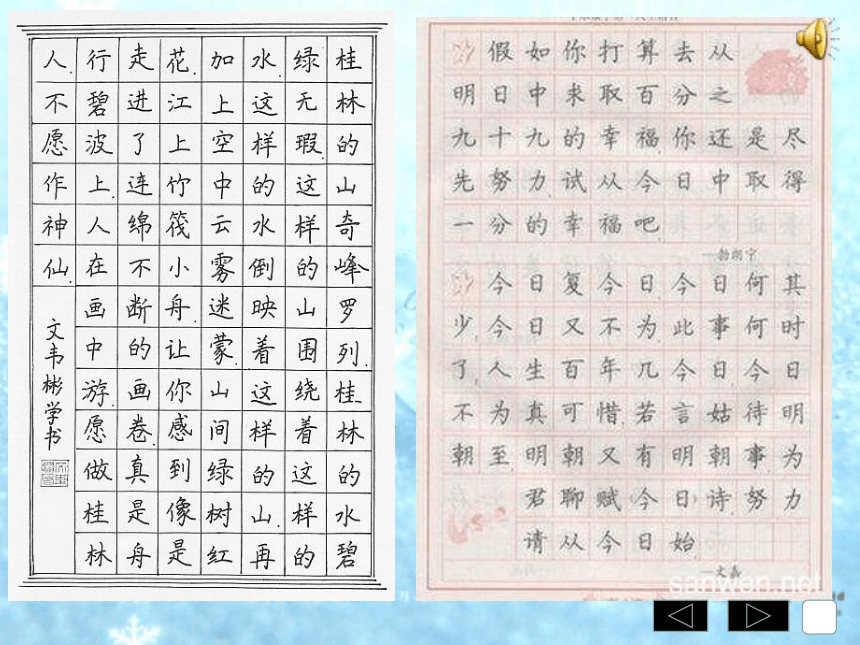 桂林的山奇峰罗列.桂林的水碧
绿无瑕.这样的山围绕着这样的
水.这样的水倒映着这样的山.再
加上空中云雾迷蒙.山间绿树红
花.江上竹筏小舟.让你感到像是
走进了连绵不断的画卷.真是舟
行碧波上.人在画中游.愿做桂林
人.不愿作神仙.
文韦彬学书
假如你打算去从
明日中来取百分之
九十九的幸福.你还是尽
先努力.试从今日中取得
一分的幸福吧.
—勃朗宁
今日复今日今日何其
少.今日又不为.此事何时
了,人生百年几今日今日
不为真可惜.若言姑待明
朝至.明朝又有明朝事为
君聊赋今日诗.努力
请从今日始.
—文嘉
sanwen.net